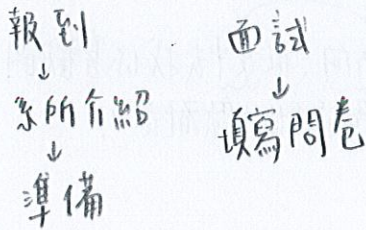 報到
↓
系所介紹
↓
準備
面試
↓
填寫問卷